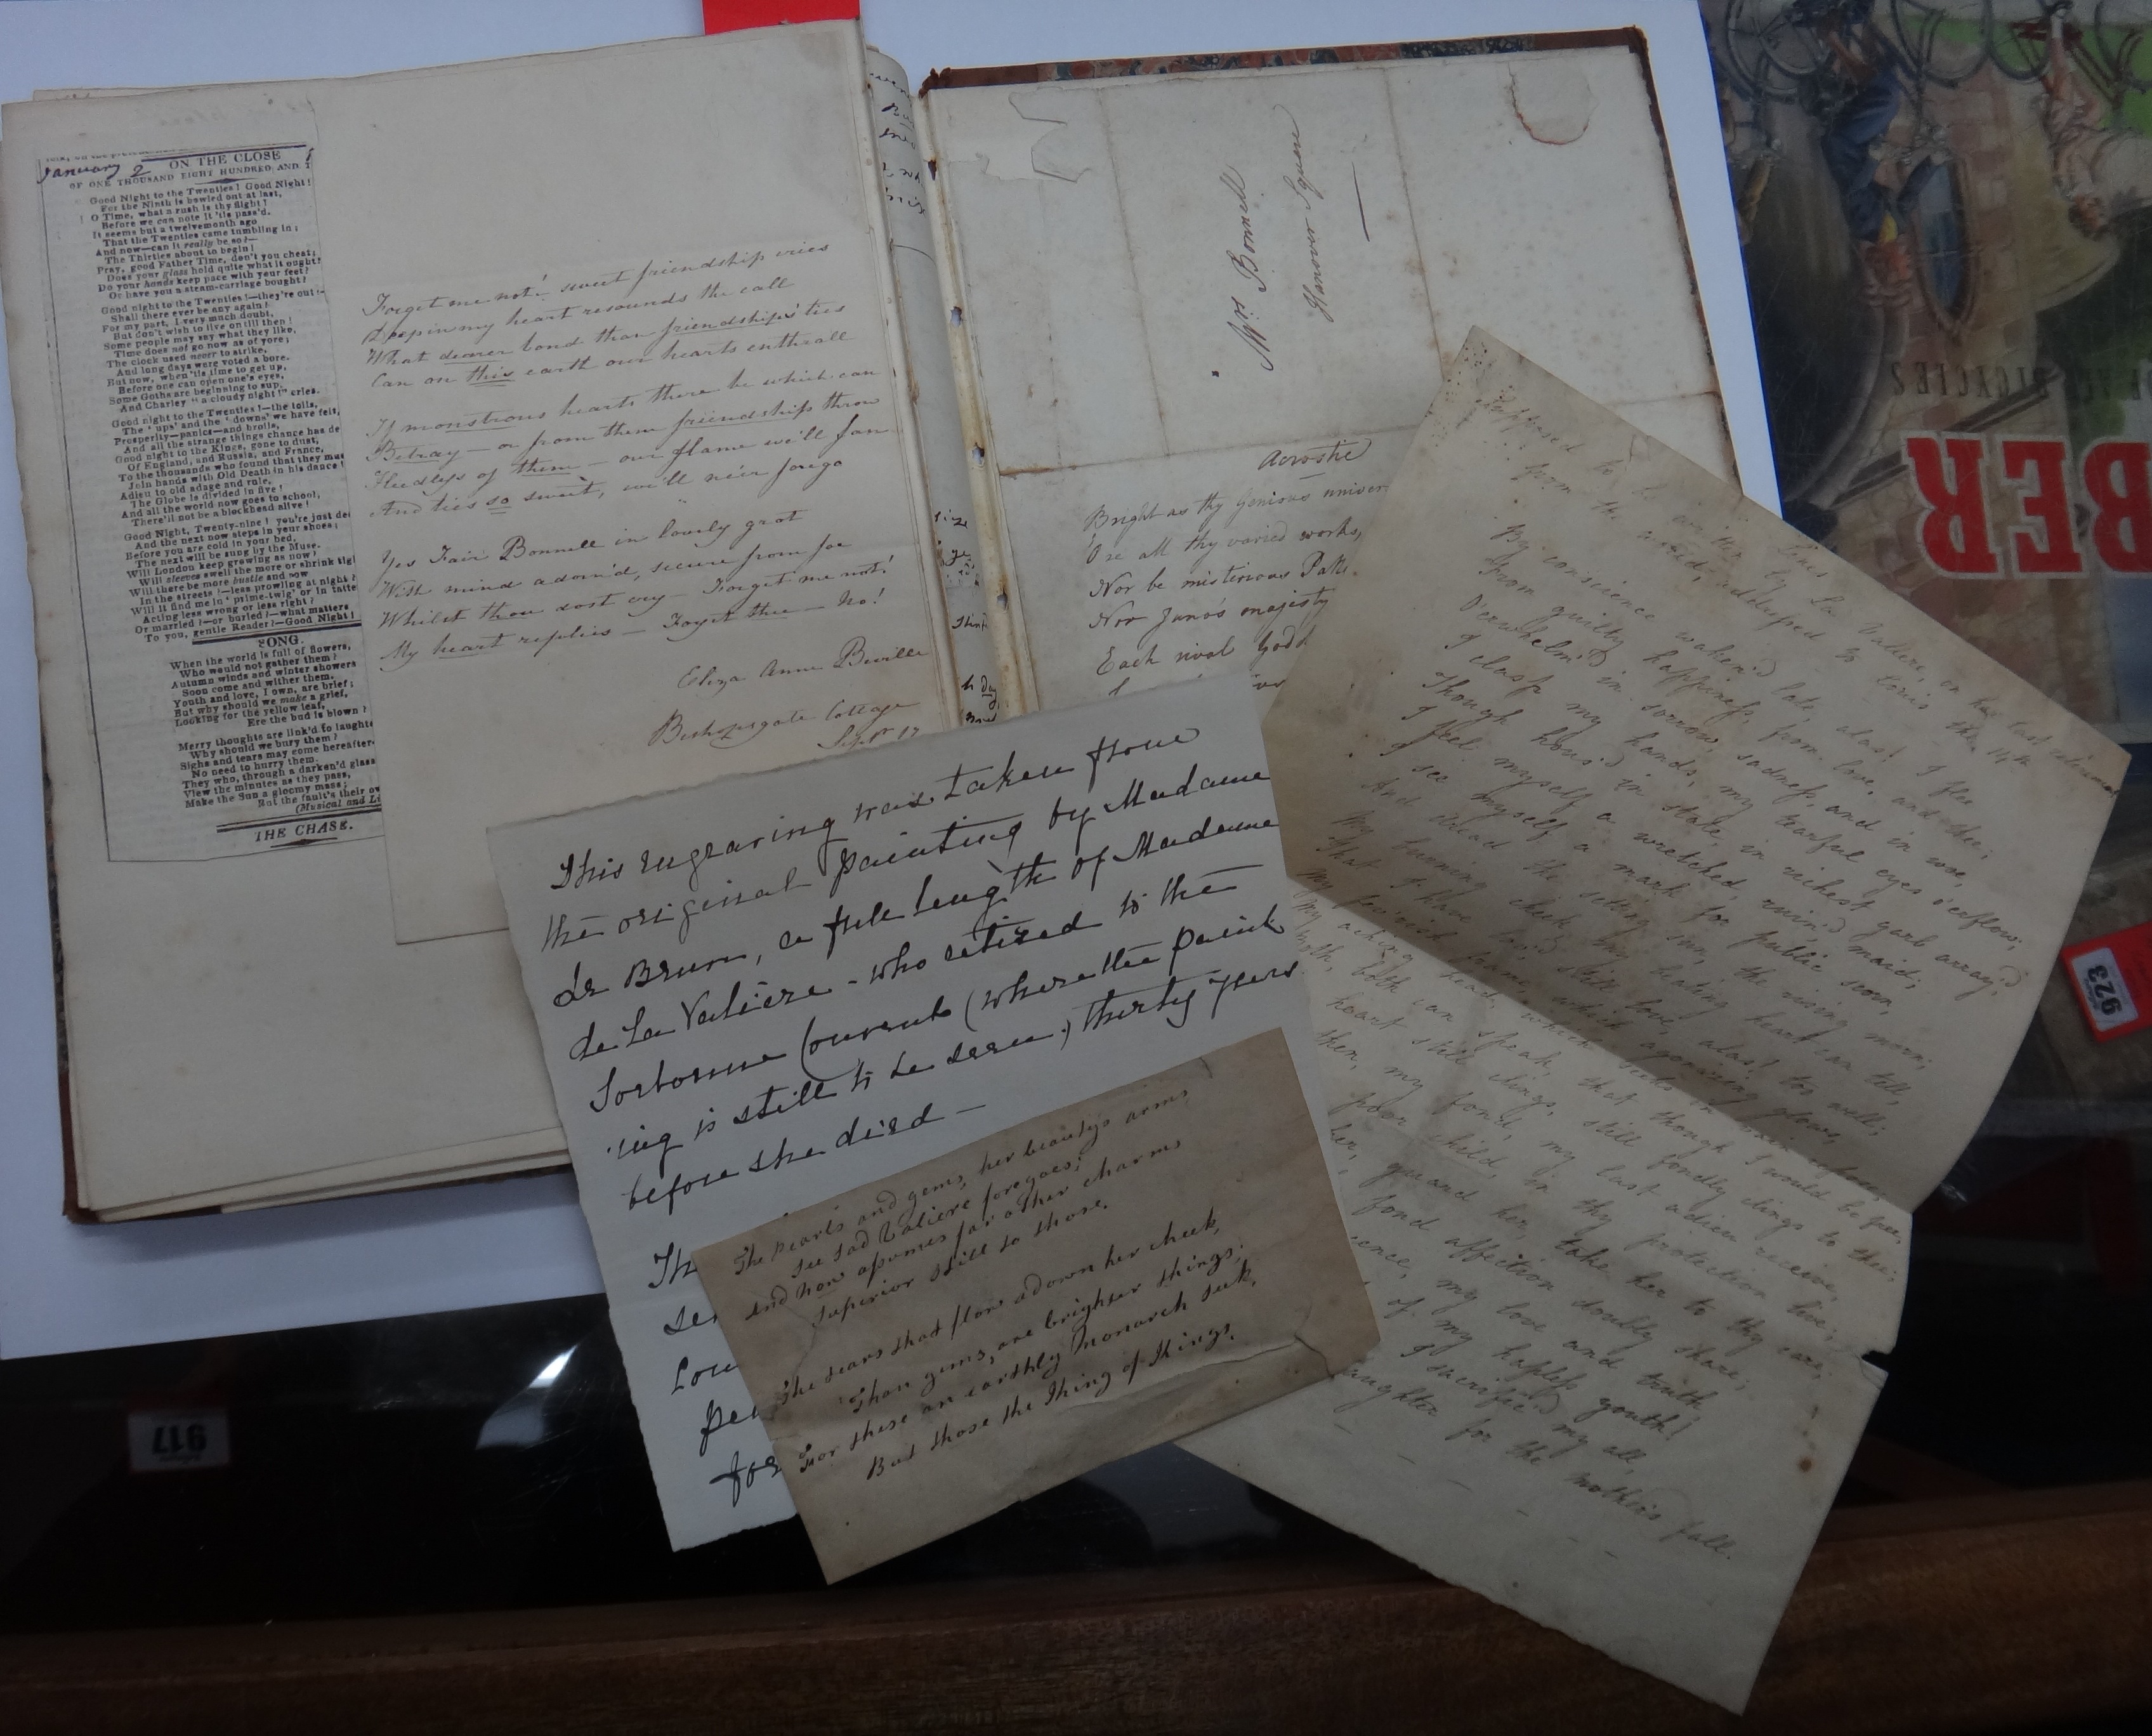 January 2
ON THE CLOSE
OF ONE THOUSAND EIGHT HUNDRED AND
Good Night to the Twenties! Good Night!
For the Ninth is bowled out at last,
O Time, what a rush is thy flight!
Before we can note it 'tis pass'd.
It seems but a twelvemonth ago
That the Twenties came tumbling in;
And now—can it really be so?—
The Thirties about to begin!
Pray, good Father Time, don't you cheat;
Does your glass hold quite what it ought?
Do your hands keep pace with your feet?
Or have you a steam-carriage bought?
Good night to the Twenties!—they're out!
Shall there ever be any again!
For my part, I very much doubt,
But don't wish to live on till then!
Some people may say what they like,
Time does not go now as of yore;
The clock used never to strike,
And long days were voted a bore.
But now, when 'tis time to get up,
Before one can open one's eyes,
Some Goths are beginning to sup,
And Charley "a cloudy night!" cries.
Good night to the Twenties!—the toils,
The 'ups' and the 'downs' we have felt,
Prosperity—panics—and broils,
And all the strange things chance has de
Good night to the Kings, gone to dust,
Of England, and Russia, and France,
To the thousands who found that they mus
Join hands with Old Death in his dance!
Adieu to old adage and rule,
The Globe is divided in five!
And all the world now goes to school,
There'll not be a blockhead alive!
Good Night, Twenty-nine! you're just de
And the next now steps in your shoes;
Before you are cold in your bed,
The next will be sung by the Muse.
Will London keep growing as now?
Will sleeves swell the more or shrink tig
Will there be more bustle and
In the streets?—less prowling at night?
Will it find me in 'prime-twig' or in tatte
Acting less wrong or less right?
Or married?—or buried?—what matters
To you, gentle Reader?—Good Night!
SONG.
When the world is full of flowers,
Who would not gather them?
Autumn winds and winter showers
Soon come and wither them.
Youth and love, I own, are brief;
But why should we make a grief,
Looking for the yellow leaf,
Ere the bud is blown?
Merry thoughts are link'd to laughte
Why should we bury them?
Sighs and tears may come hereafter
No need to hurry them.
They who, through a darken'd glass
View the minutes as they pass,
Make the Sun a gloomy mass;
But the fault's their ow
(Musical and Li
THE CHASE.
Forget me not! sweet friendship cries
Deep in my heart resounds the call
What dearer bond than friendship's ties
Can on this earth our hearts enthrall
If monstrous hearts there be which can
Betray — or from them friendship throw
Heedless of them — our flame we'll fan
And ties so sweet, we'll ne'er forgo
Yes Fair Bonnell in lovely grot
With mind adorn'd, secure from foe
Whilst thou dost cry — Forget me not!
My heart replies — Forget thee — No!
Eliza Anne
Bishopsgate Cottage
Septr 17
Mrs Bonnell
Hanover Square
Acrostic
Bright as thy genious univer
O'er all thy varied works,
Nor be misterious
Nor Juno's majesty
Each rival Godd
This engraving was taken from
the original painting by Madame
de Brun, a full length of Madame
de La Valiere - who retired to the
Sorbonne Convent (where the paint
ing is still to be seen,) thirty years
before she died —
Th
Lou
for
The pearls and gems, her beautys arms
See sad Valiere foregoes;
And now assumes far other charms
Superior still to those.
The tears that flow adown her cheek,
Than gems, are brighter things;
For these an earthly Monarch seek,
But those the King of Kings.
Supposed to be written by La Valiere, on her last
from the addressed to Louis the 14th
By conscience waken'd late, alas! I flee
From guilty happiness, from love, and thee;
O'erwhelm'd in sorrow, sadness, and in woe,
I clasp my hands, my tearful eyes o'erflow;
Though hous'd in state, in richest garb array'd,
I feel myself a wretched, ruin'd maid;
I see myself a mark for public scorn,
And dread the setting sun, the rising morn;
My burning cheek, my beating heart can tell,
That I have lov'd, still love, alas! too well;
My fev'rish frame, which agonizing glows,
My aching head, which seeks in vain repose,
both can speak, that though I would be free,
heart still clings, still fondly clings to thee;
then, my fond, my last adieu receive,
poor child, in thy protection live;
her, guard her, take her to thy care;
fond affection doubly share;
my love and truth
of my hapless youth!
I sacrific'd my all,
aughter for the mother's fall.
BICYCLES
BER
923
917